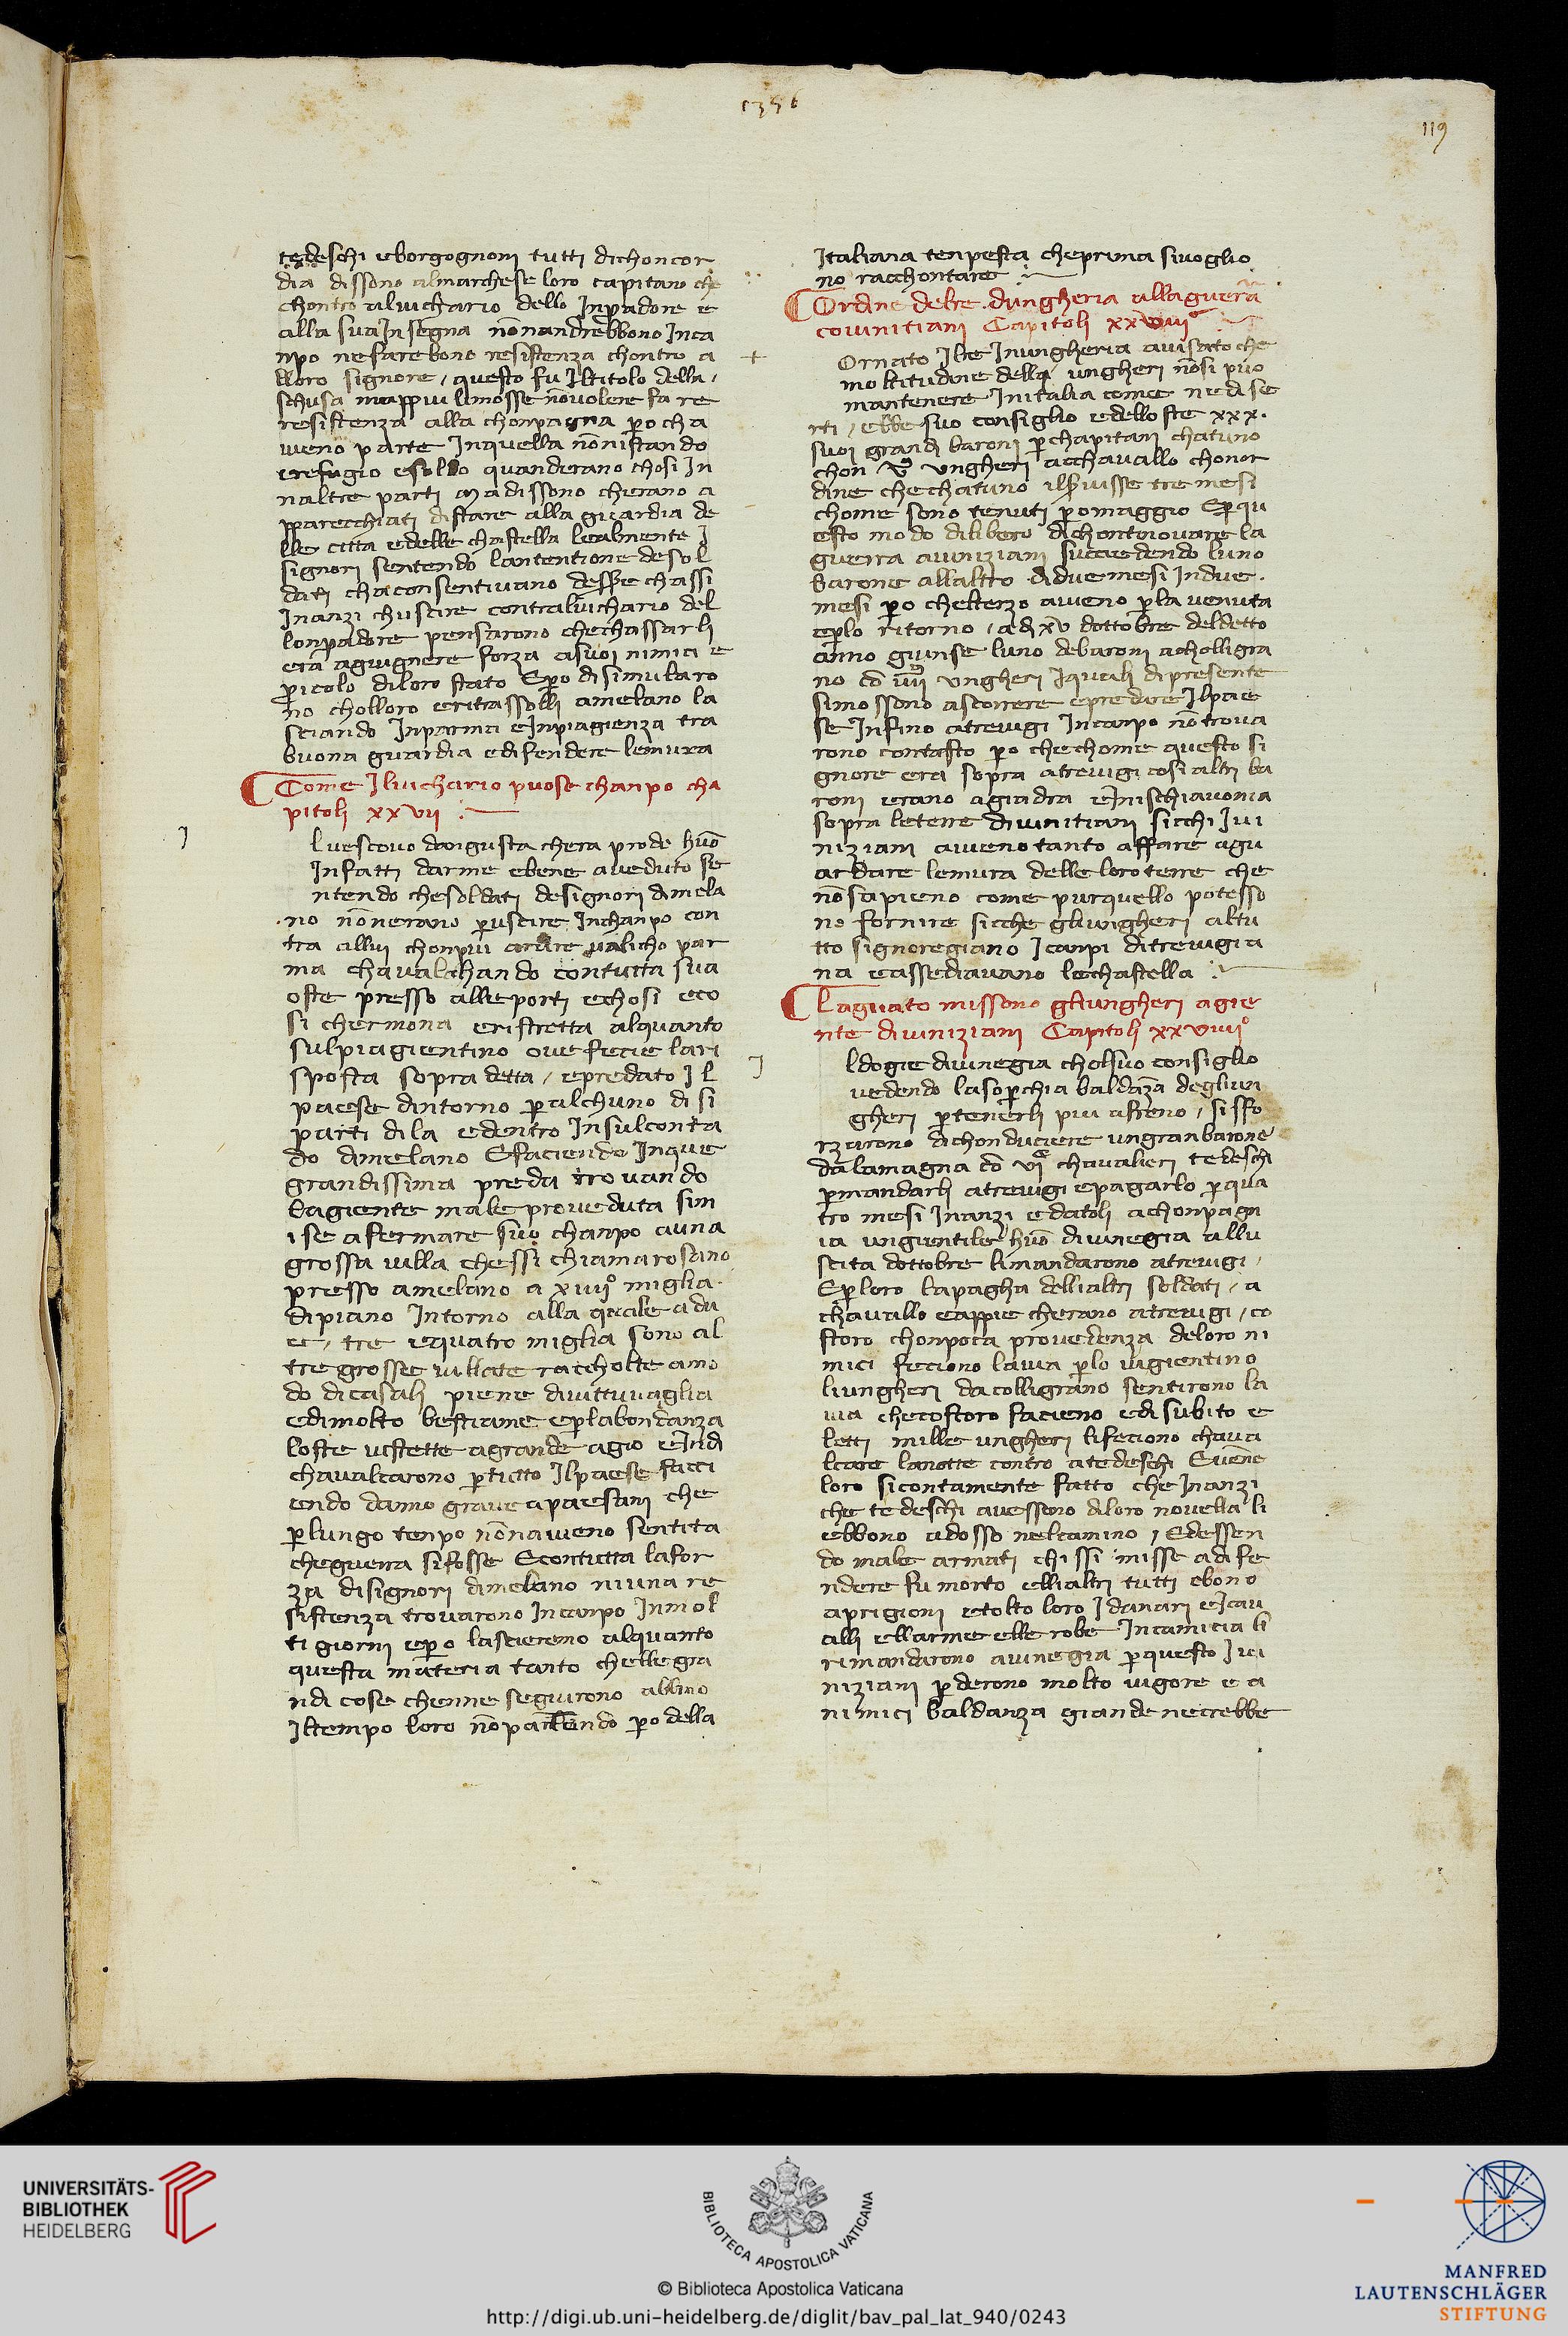 1356
119
tedeschi e borgognoni tutti dichoncor
dia dissono almarchese loro capitano che
chontro aluichario dello Inpadore e
alla sua Insegna nōnandrebbono Inca
npo nefarebono resistenza chontro a
lloro signore / questo fu Iltitolo della /
schusa mappiu limosse nōuolere fare
resistenza alla chonpagna ꝑo cha
ueno parte Inquella nōnistando
erefugio esoldo quanderano chosi In
naltre parti Madissono cherano a
pparecchiati distare alla guardia de
lle citta edelle chastella lealmente I
signori sentendo lantentione desol
dati chaconsentiuano dessere chassi
Inanzi chuscire contraluichario del
lonpadore pensarono chechassarli
era agiugnere forza asuoi nimici e
ꝑicolo diloro stato Eꝑo disimularo
no cholloro eritrassolli amelano la
sciando Inparma eInpiagienza tra
buona guardia edifendere lemura
Come Iluichario puose chanpo cha
pitoli xxvii
J
luescouo daugusta chera prode huō
Infatti darme ebene aueduto se
ntendo chesoldati designori dimela
no nōnerano ꝑuscire Inchanpo con
tra allui chonpiu ardire ualicho par
ma chaualchando contutta sua
oste presso alleporti echosi eco
si chermona eristretta alquanto
sulpiagientino ouefecie lari
sposta sopra detta / epredato Il
paese dintorno ꝑalchuno di si
parti dila edentro Insulconta
do dimelano Efaciendo Inque
grandissima preda trouando
lagiente male proueduta sim
ise afermare suo chanpo auna
grossa uilla chessi chiamarosano
presso amelano a xiiii° miglia
dipiano Intorno alla quale adu
e / tre equatro miglia sono al
tre grosse uillate racholte amo
do dicasali piene diuittuuaglia
edimolto bestiame eꝑlabondanza
loste uistette agrande agio eIndi
chaualcarono ꝑtutto Ilpaese facci
endo danno graue apaesani che
ꝑlungo tenpo nōnaueno sentita
cheguerra sifosse Econtutta lafor
za disignori dimelano niuna re
sistenza trouarono Incanpo Inmol
ti giorni eꝑo lascieremo alquanto
questa materia tanto chelle gra
ndi cose chenne seguirono abbino
Iltempo loro nōpartendo ꝑo della
Italiana tenpesta cheprima siuoglio
no racchontare
Ordine delre dungheria allaguerra
couinitiani Capitoli xxviii°
Ornato Ilre Inungheria auisato che
moltitudine della ungheri nōsi puo
mantenere Initalia come nedise
rti / ebbe suo consiglio edelloste xxx.
suoi grandi baroni ꝑchapitani chatuno
chon ungheri acchauallo chonor
dine chechatuno ilseruisse tre mesi
chome sono tenuti ꝑomaggio Eꝑqu
esto modo dilibero dichontinouare la
guerra auiniziani succedendo luno
barone allaltro didue mesi Indue
mesi ꝑo chelterzo aueno ꝑla uenuta
eꝑlo ritorno / adi xv dottobre deldetto
anno giunse luno debaroni acholligra
no cō ungheri Iquali dipresente
simossono ascorrere epredare Ilpae
se Infino atreuigi Incanpo nōtroua
rono contasto ꝑo chechome questo si
gnore era sopra atreuigi cosi altri ba
roni erano agiadra eInischiauonia
sopra leterre diuinitiani sicchi Iui
niziani aueno tanto affare agu
ardare lemura delle loro terre che
nōsapieno come purquello potesso
no fornire sicche gliungheri altu
tto signoregiano Icanpi ditreuigia
na eassediauano lechastella
Laguato missono gliungheri agie
nte diuiniziani Capitoli xxviiii°
J
ldogie diuinegia cholsuo consiglio
uedendo lasoꝑchia baldāza degliun
gheri ꝑtenerli piu afreno / sisfo
rzarono dichonduciere ungranbarone
dalamagna cō chaualieri tedeschi
ꝑmandarli atreuigi epagarlo ꝑqua
tro mesi Inanzi edatoli achonpagn
ia ungientile huō diuinegia allu
scita dottobre limandarono atreuigi /
Eꝑloro lapagha dellialtri soldati / a
chauallo eappie cherano atreuigi / co
storo chonpoca prouedenza deloro ni
mici feciono lauia ꝑlo uigientino
liungheri dacolligrano sentirono la
uia checostoro facieno edi subito e
letti mille ungheri lifeciono chaua
lcare lanotte contro atedeschi Euēne
loro sicontamente fatto che Inanzi
che tedeschi auessono diloro nouella li
ebbono adosso nelcamino / Edessen
do male armati chissi misse adife
ndere fu morto ellialtri tutti ebono
aprigioni etolto loro Idanari eIcau
alli ellarme elle robe Incamicia li
rimandarono auinegia ꝑquesto Iui
niziani ꝑderono molto uigore e a
nimici baldanza grande necrebbe
UNIVERSITÄTS-
BIBLIOTHEK
HEIDELBERG
BIBLIOTECA APOSTOLICA VATICANA
© Biblioteca Apostolica Vaticana
http://digi.ub.uni-heidelberg.de/diglit/bav_pal_lat_940/0243
MANFRED
LAUTENSCHLÄGER
STIFTUNG